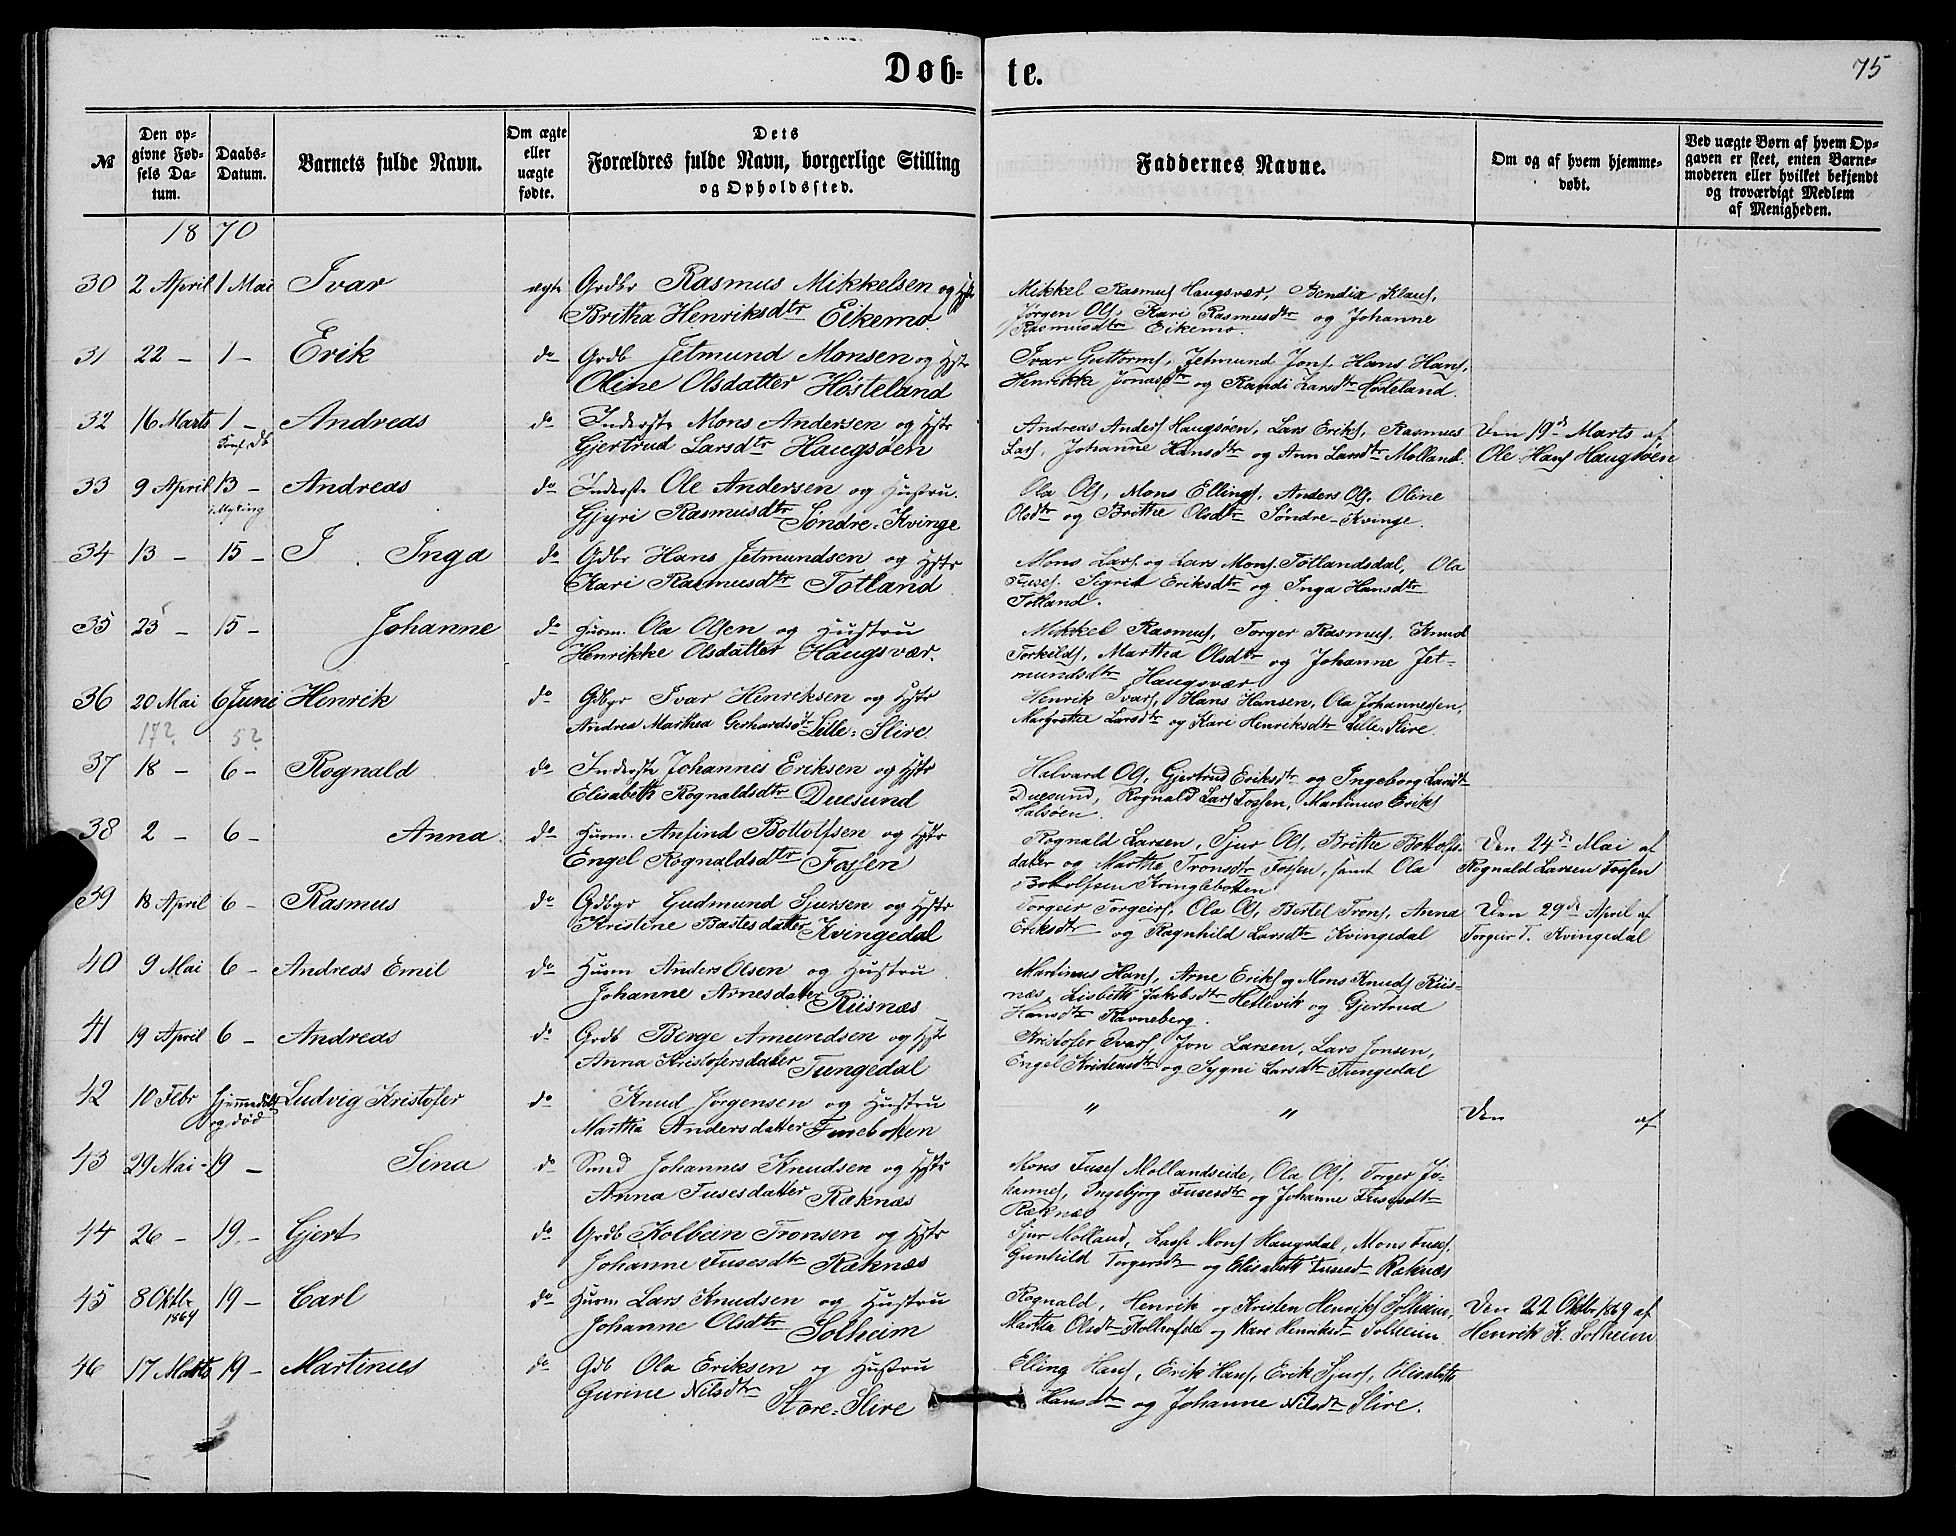 Døb-te.
75
№
Den opgivne Fødsels Datum.
Daabs-Datum.
Barnets fulde Navn.
Om ægte eller uægte fødte.
Dets Forældres fulde Navn, borgerlige Stilling og Opholdssted.
Faddernes Navne.
Om og af hvem hjemmedøbt.
Ved uægte Børn af hvem Opgaven er skeet, enten Barnemoderen eller hvilket bekjendt og troværdigt Medlem af Menigheden.
1870
30 2 April 1 Mai Ivar ægte Grdbr Rasmus Mikkelsen og Hstr
Britha Henriksdtr Eikemo.
Mikkel Rasmus Haugsvær, Bendix Klaus,
Jørgen Ols, Kari Rasmusdtr og Johanne
Rasmusdtr Eikemo.
31 22 – 1 – Erik do Grdb Jetmund Monsen og Hstr
Oline Olsdatter Hosteland
Ivar Guttorms, Jetmund Jons, Hans Hans,
Henrikke Jonasdtr og Randi Larsdtr Hosteland.
32 16 Marts 1 – Andreas do Inderste Mons Andersen og Hstr
Gjertrud Larsdtr Haugsøen
Andreas Anders Haugsøen, Lars Eriks, Rasmus
Lars, Johanne Hansdtr og Ann Larsdtr Molland.
Den 19de Marts af
Ole Hans Haugsøen
33 9 April 13 – Andreas do Inderste Ole Andersen og Hustru
i Myking
Gjyri Rasmusdtr Søndre-Kvinge
Ola Ols, Mons Ellings, Anders Ols, Oline
Olsdtr og Brithe Olsdtr Søndre-Kvinge.
34 13 – 15 – I Inga do Gdbr Hans Jetmundsen og Hstr
Kari Rasmusdtr Totland
Mons Lars og Lars Mons Totlandsdal, Ola
Fuses, Sigrid Eriksdtr og Inga Hansdtr
Totland.
35 23 – 15 – Johanne do Husm. Ola Olsen og Hustru
Henrikke Olsdatter Haugsvær.
Mikkel Rasmus, Torger Rasmus, Knud
Torkilds, Martha Olsdtr og Johanne Jet-
mundsdtr Haugsvær
36 20 Mai 6 Juni Henrik do Gdbgr Ivar Henriksen og Hstr
17? 5?
Andrea Marthea Gerhardsdtr Lille-Slire.
Henrik Ivars, Hans Hansen, Ola Johannessen,
Margrethe Larsdtr og Kari Henriksdtr Lille-Slire.
37 18 – 6 – Rognald do Inderste Johannes Eriksen og Hstr
Elisabeth Rognaldsdtr Duesund
Halvard Ols, Gjertrud Eriksdtr og Ingeborg Larsdtr
Duesund, Rognald Lars Fossen, Martinus Eriks
38 2 – 6 – Anna do Husm. Anfind Bottolfsen og Hstr
Engel Rognaldsdtr Fossen
Rognald Larsen, Sjur Ols, Brithe Bottolfs-
datter og Marthe Tronsdtr Fossen, samt Ola
Bottolfsen Kringlebotten
Den 24de Mai af
Rognald Larsen Fossen
39 18 April 6 – Rasmus do Gdbgr Gudmund Sjursen og Hstr
Kristine Bastesdatter Kvingedal
Torgeir Torgeirs, Ola Ols, Bertel Trons, Anna
Eriksdtr og Ragnhild Larsdtr Kvingedal
Den 29de April af
Torgeir T. Kvingedal
40 9 Mai 6 – Andreas Emil do Husm Anders Olsen og Hustru
Johanne Arnesdatter Riisnæs
Martinus Hans, Arne Eriks og Mons Knuds Riis-
næs, Lisbeth Jakobsdtr Hellevik og Gjertrud
Hansdtr Ravneberg.
41 19 April 6 – Andreas do Grdb Berge Amundsen og Hstr
Anna Kristofersdatter Tungedal
Kristofer Ivars, Jon Larsen, Lars Jonsen,
Engel og Sygni Larsdtr Tungedal
42 10 Febr hjemmedøbt Ludvig Kristofer do Knud Jørgensen og Hustru
og død
Martha Andersdatter
" "
Den af
43 29 Mai 19 – Sina do Smed Johannes Knudsen og Hstr
Anna Fusesdatter Ræknæs
Mons Fuses Mollandseide, Ola Ols, Torger Jo-
hannes, Ingebjorg Fusesdtr og Johanne Fusesdtr
Ræknæs
44 26 – 19 – Gjert do Grdb Kolbein Tronsen og Hstr
Johanne Fusesdtr Ræknæs
Sjur Molland, Lasse Mons Haugsdal, Mons Fuses,
Gunhild Torgersdtr og Elisabeth Fusesd Ræknæs
45 8 Oktbr 19 – Carl do Husm Lars Knudsen og Hustru
1869
Johanne Olsdtr Solheim
Rognald, Henrik og Kristen Henriks Solheim,
Martha Olsdtr og Kari Henriksdtr Solheim
Den 22 Oktbr 1869 af
Henrik K. Solheim
46 17 Marts 19 – Martinus do Gdb Ola Eriksen og Hustru
Gurine Nilsdtr Store-Slire
Elling Hans, Erik Hans, Erik Sjurs, Elisabeth
Hansdtr og Johanne Nilsdtr Slire.